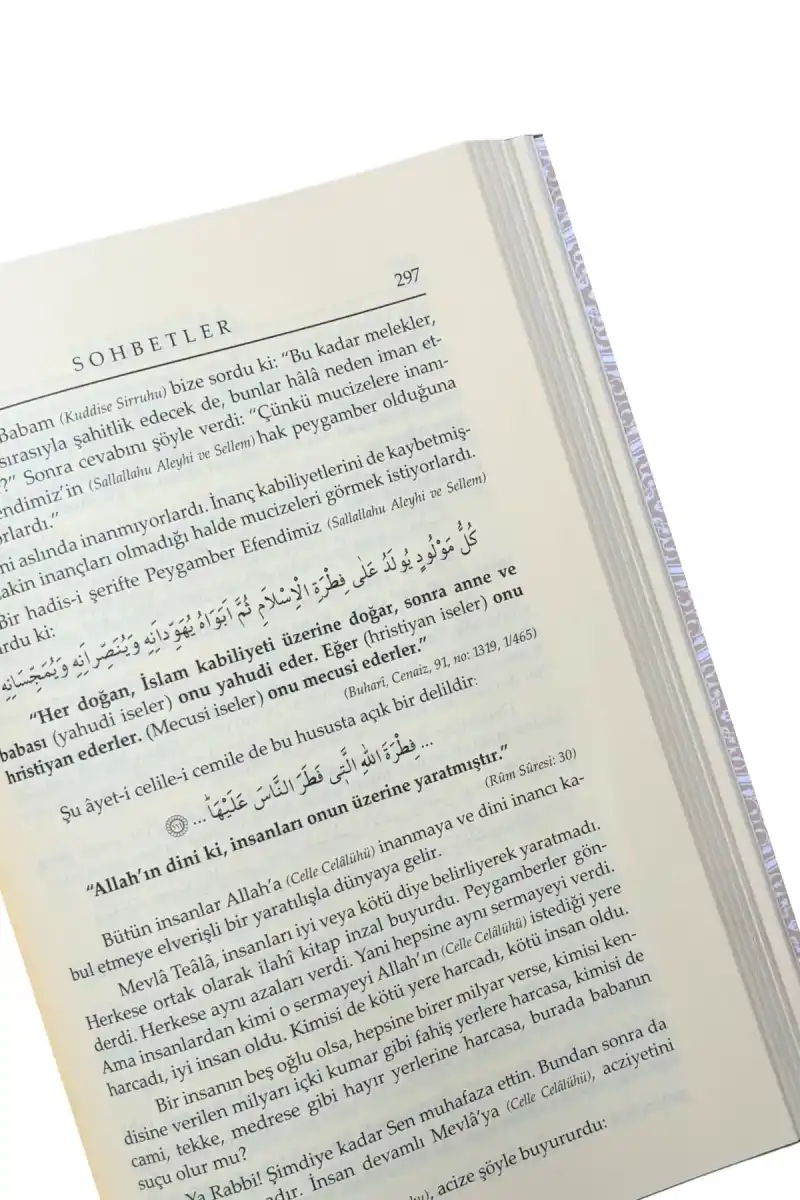 297
SOHBETLER
Babam (Kuddise Sirruhu) bize sordu ki: “Bu kadar melekler,
sırasıyla şahitlik edecek de, bunlar hâlâ neden iman et-
?” Sonra cevabını şöyle verdi: “Çünkü mucizelere inanı-
endimiz’in (Sallallahu Aleyhi ve Sellem) hak peygamber olduğuna
orlardı.”
ni aslında inanmıyorlardı. İnanç kabiliyetlerini de kaybetmiş-
akin inançları olmadığı halde mucizeleri görmek istiyorlardı.
Bir hadis-i şerifte Peygamber Efendimiz (Sallallahu Aleyhi ve Sellem)
rdu ki:
كُلُّ مَوْلُودٍ يُولَدُ عَلَى فِطْرَةِ الْإِسْلَامِ ثُمَّ اَبَوَاهُ يُهَوِّدَانِهِ وَيُنَصِّرَانِهِ وَيُمَجِّسَانِهِ
“Her doğan, İslam kabiliyeti üzerine doğar, sonra anne ve
babası (yahudi iseler) onu yahudi eder. Eğer (hristiyan iseler) onu
hristiyan ederler. (Mecusi iseler) onu mecusi ederler.”
(Buharî, Cenaiz, 91, no: 1319, 1/465)
Şu âyet-i celile-i cemile de bu hususta açık bir delildir:
... فِطْرَةَ اللّٰهِ الَّتِى فَطَرَ النَّاسَ عَلَيْهَا ...
“Allah’ın dini ki, insanları onun üzerine yaratmıştır.”
(Rûm Sûresi: 30)
Bütün insanlar Allah’a (Celle Celâlühü) inanmaya ve dini inancı ka-
bul etmeye elverişli bir yaratılışla dünyaya gelir.
Mevlâ Teâlâ, insanları iyi veya kötü diye belirliyerek yaratmadı.
Herkese ortak olarak ilahî kitap inzal buyurdu. Peygamberler gön-
derdi. Herkese aynı azaları verdi. Yani hepsine aynı sermayeyi verdi.
Ama insanlardan kimi o sermayeyi Allah’ın (Celle Celâlühü) istediği yere
harcadı, iyi insan oldu. Kimisi de kötü yere harcadı, kötü insan oldu.
Bir insanın beş oğlu olsa, hepsine birer milyar verse, kimisi ken-
disine verilen milyarı içki kumar gibi fahiş yerlere harcasa, kimisi de
cami, tekke, medrese gibi hayır yerlerine harcasa, burada babanın
suçu olur mu?
Ya Rabbi! Şimdiye kadar Sen muhafaza ettin. Bundan sonra da
adır. İnsan devamlı Mevlâ’ya (Celle Celâlühü), acziyetini
acize şöyle buyururdu: